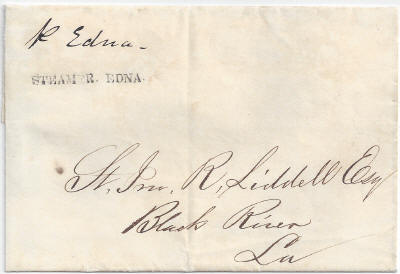 p Edna.
STEAMER. EDNA.
St. Jno. R. Liddell Esq
Black River
La